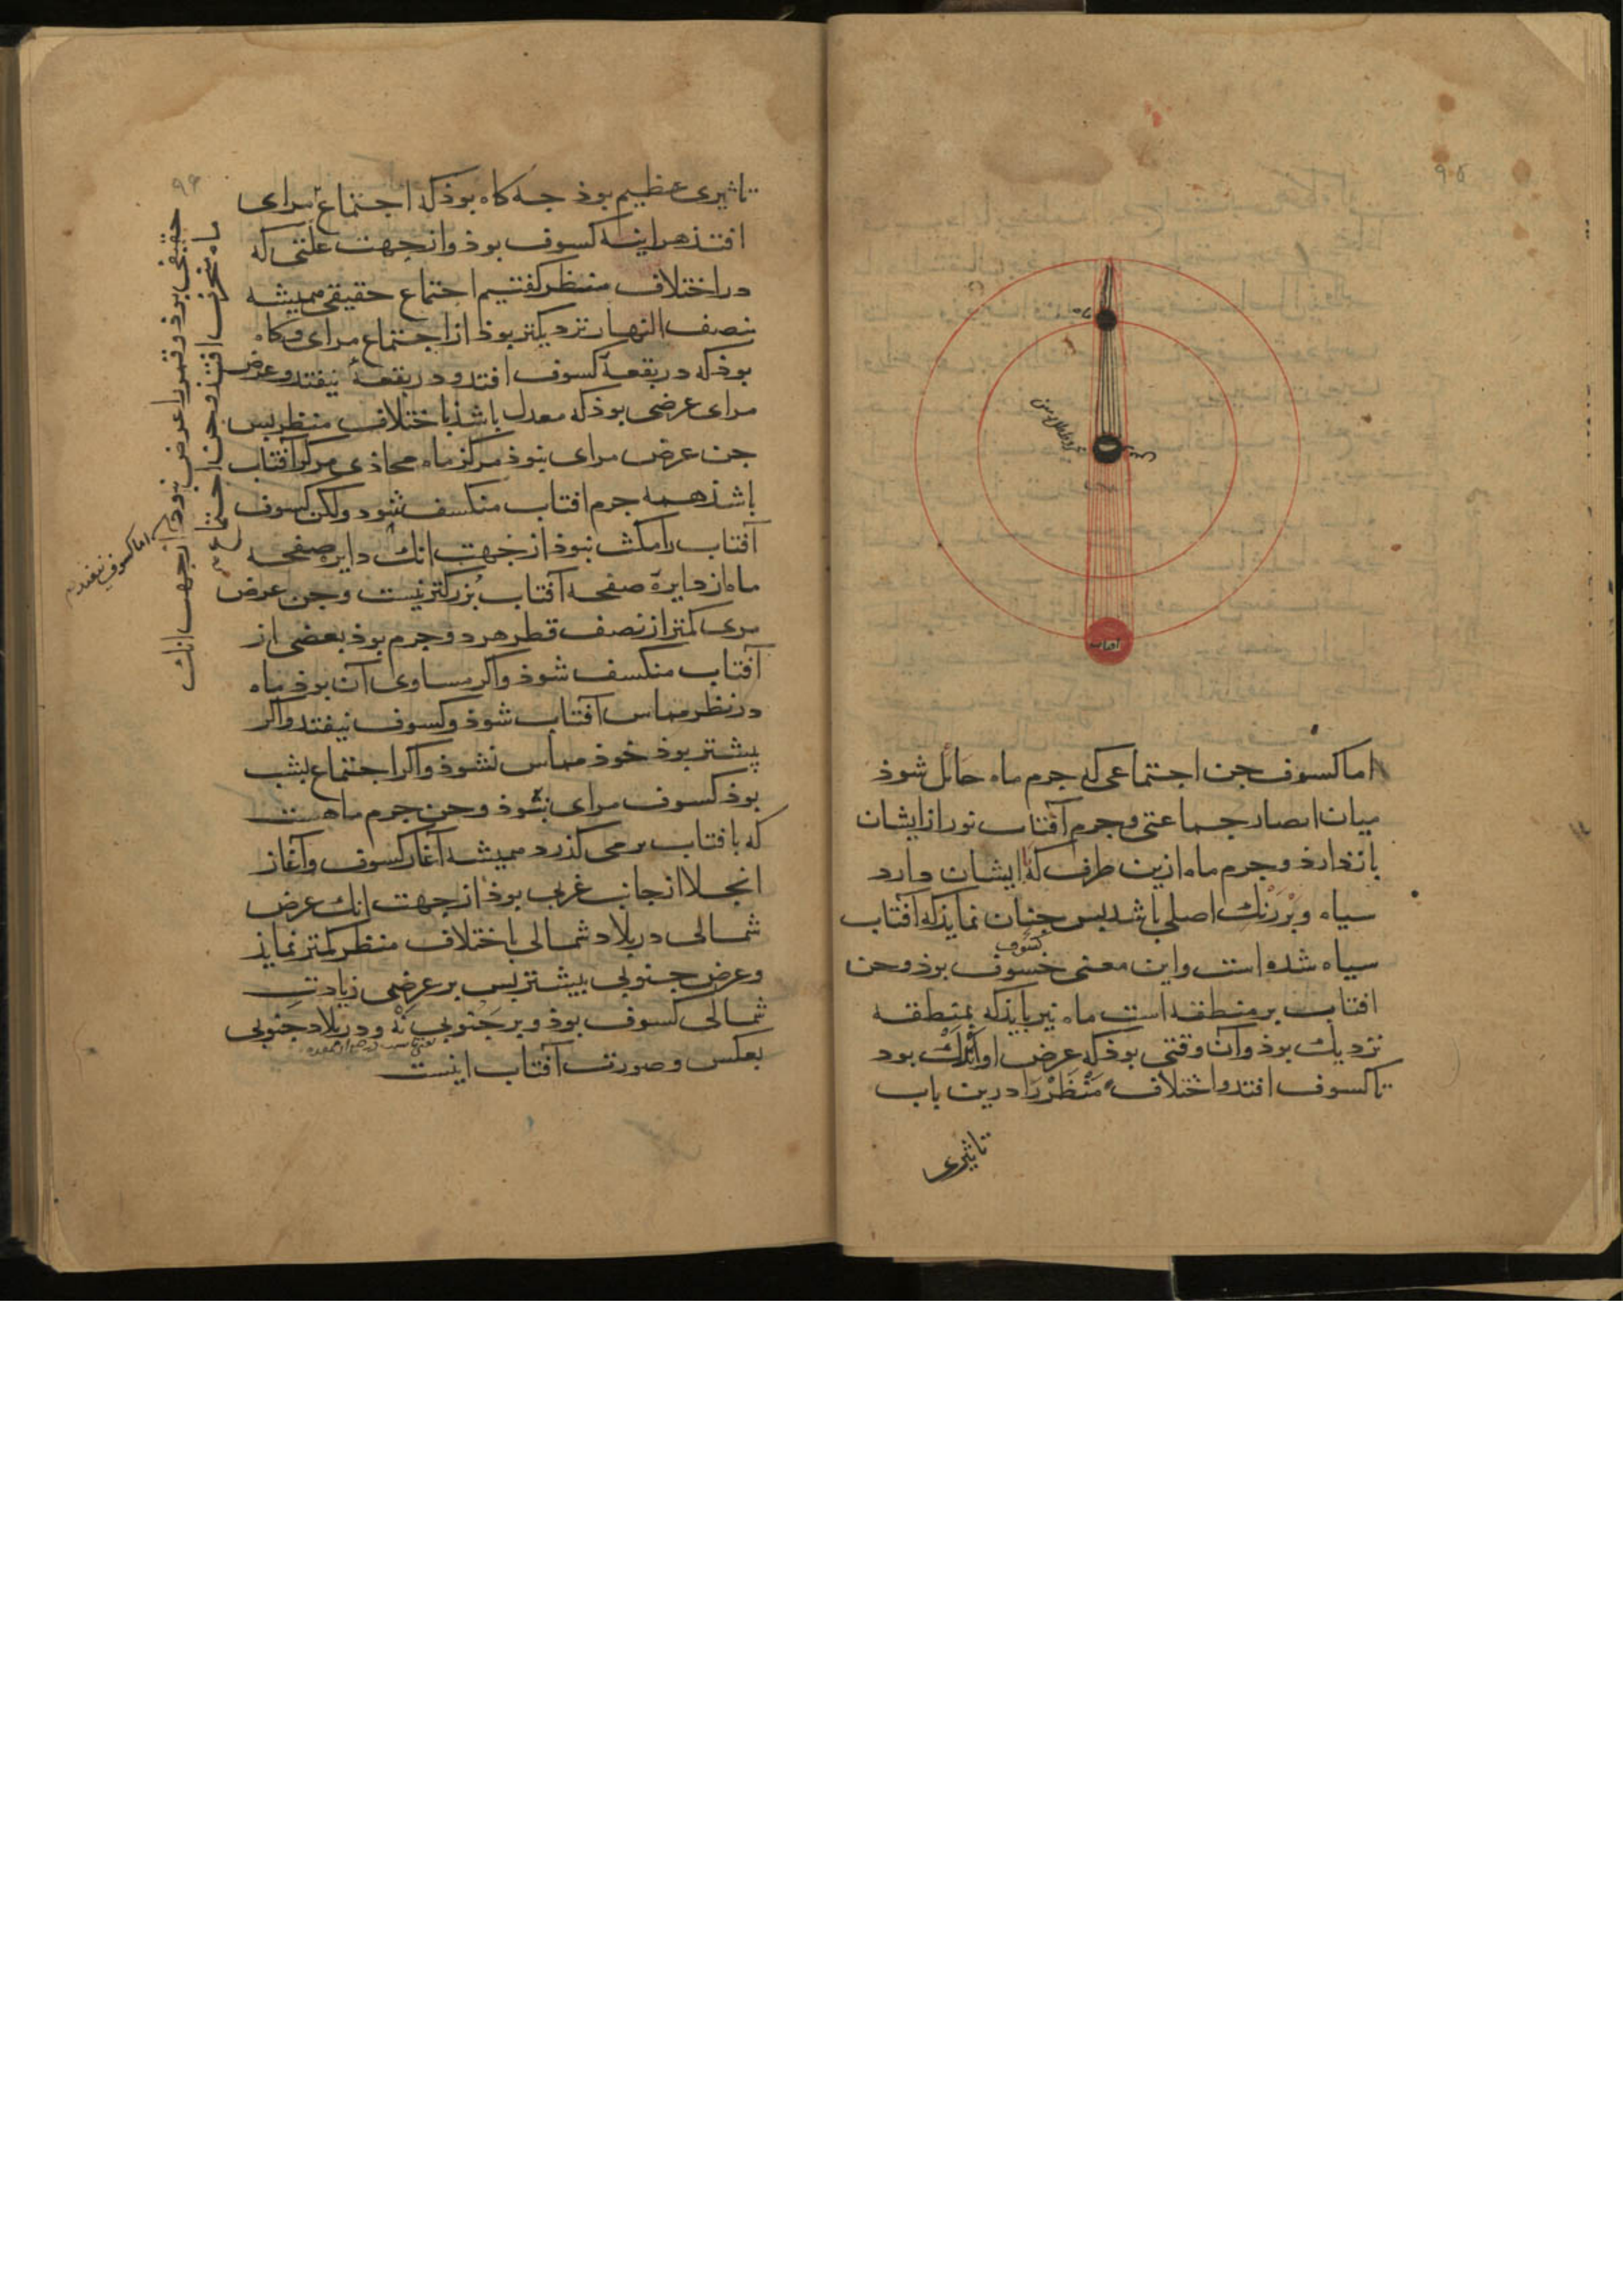 ۹۵
ماه
زمین
آفتاب
اما کسوف جن اجتماعی که جرم ماه حائل شوذ
میان ابصار جماعتی و جرم آفتاب نور از ایشان
باز دارذ و جرم ماه ازین طرف که با ایشان دارد
سیاه و بر رنك اصلی باشد بس جنان نمایذ که آفتاب
کسوف
سیاه شده است و این معنی خسوف بوذ و جن
افتاب بر منطقه است ماه نیز بایذ که بمنطقه
نزدیك بوذ و آن وقتی بوذ که عرض او اندك بود
تا کسوف افتد و اختلاف منظر را درین باب
تاثیری
۹۶
تاثیری عظیم بوذ جه کاه بوذ که اجتماع مرای
افتذ هراینه کسوف بوذ و از جهت علتی که
در اختلاف منظر کفتیم اجتماع حقیقی همیشه
بنصف النهار نزدیکتر بوذ از اجتماع مرای و کاه
بوذ که در بقعهٔ کسوف افتد و در بقعهٔ نیفتد و عرض
مرای عرضی بوذ که معدل باشذ باختلاف منظر بس
جن عرض مرای نبوذ مرکز ماه محاذی مرکز آفتاب
باشذ همه جرم افتاب منکسف شود ولکن کسوف
آفتاب را مکث نبوذ از جهت انك دایره صفحه
ماه از دایرهٔ صفحه آفتاب بزرکتر نیست و جن عرض
مری کمتر از نصف قطر هر دو جرم بوذ بعضی از
آفتاب منکسف شوذ و اکر مساوی آن بوذ ماه
در نظر مماس آفتاب شوذ و کسوف نیفتد و اکر
بیشتر بوذ خوذ مماس نشوذ و اکر اجتماع بشب
بوذ کسوف مرای نشوذ و جن جرم ماهست
که بافتاب بر می کذرد همیشه آغاز کسوف و آغاز
انجلا از جانب غربی بوذ از جهت انك عرض
شمالی در بلاد شمالی باختلاف منظر کمتر نمایذ
و عرض جنوبی بیشتر بس بر عرضی زیادت
شمالی کسوف بوذ و بر جنوبی نه و در بلاد جنوبی
بعکس و صورت آفتاب اینست
ماه منحرف افتذ و جن اجتماع
حقیقی بوذ و قمر را عرض نبوذ از جهت انك
اما کسوف نیفتد